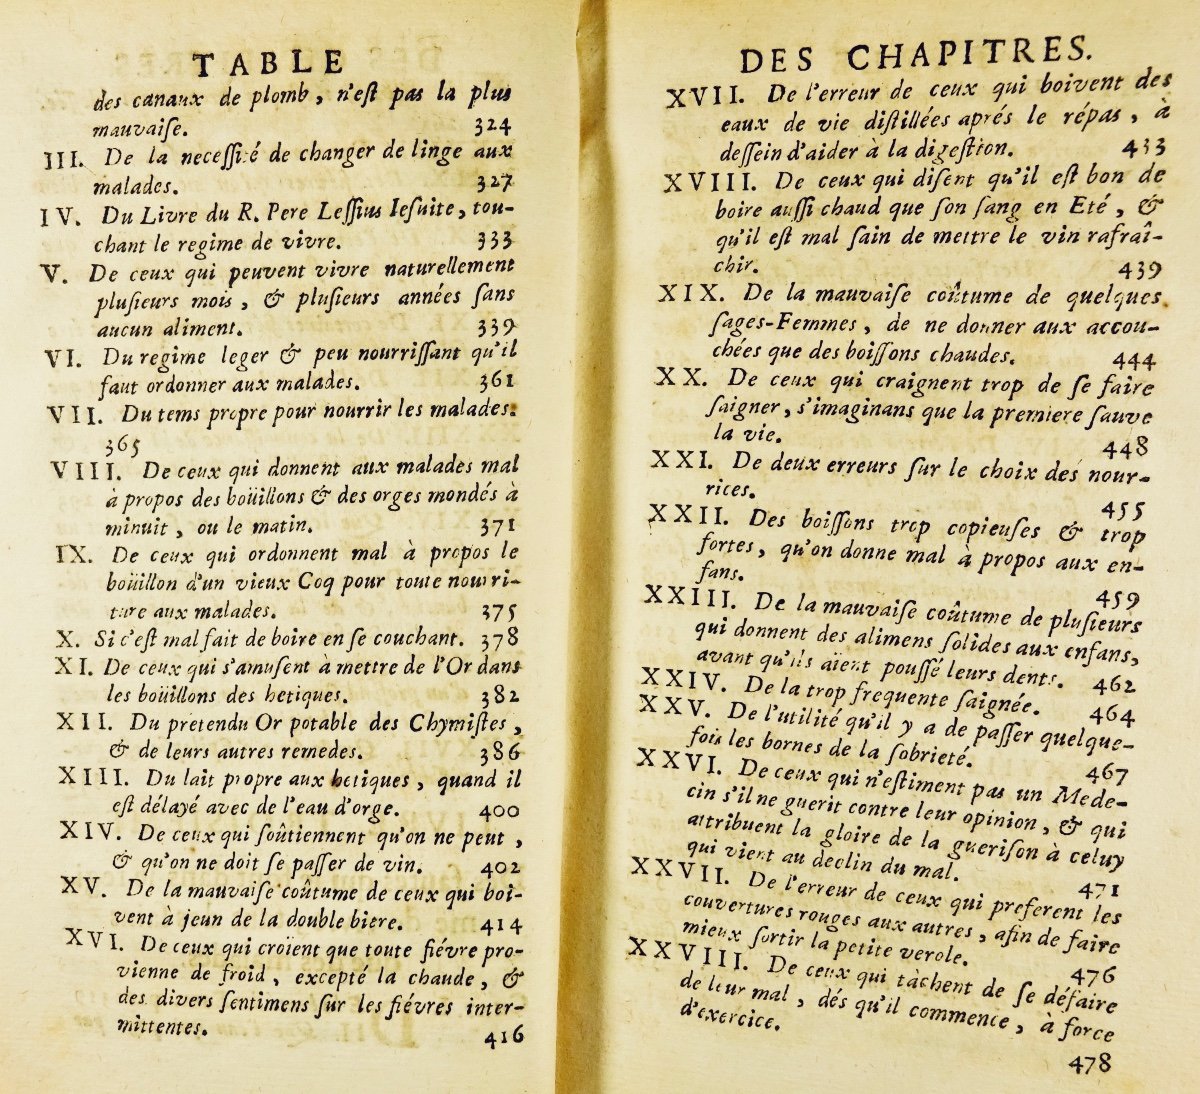 TABLE
des canaux de plomb, n'eſt pas la plus
mauvaiſe. 324
III. De la neceſſité de changer de linge aux
malades. 327
IV. Du Livre du R. Pere Leſſius Ieſuite, tou-
chant le regime de vivre. 333
V. De ceux qui peuvent vivre naturellement
pluſieurs mois, & pluſieurs années ſans
aucun aliment. 339
VI. Du regime leger & peu nourriſſant qu'il
faut ordonner aux malades. 361
VII. Du tems propre pour nourrir les malades.
365
VIII. De ceux qui donnent aux malades mal
à propos des boüillons & des orges mondés à
minuit, ou le matin. 371
IX. De ceux qui ordonnent mal à propos le
boüillon d'un vieux Coq pour toute nourri-
ture aux malades. 375
X. Si c'eſt mal fait de boire en ſe couchant. 378
XI. De ceux qui s'amuſent à mettre de l'Or dans
les boüillons des hetiques. 382
XII. Du pretendu Or potable des Chymiſtes,
& de leurs autres remedes. 386
XIII. Du lait propre aux hetiques, quand il
eſt délayé avec de l'eau d'orge. 400
XIV. De ceux qui ſoûtiennent qu'on ne peut,
& qu'on ne doit ſe paſſer de vin. 402
XV. De la mauvaiſe coûtume de ceux qui boi-
vent à jeun de la double biere. 414
XVI. De ceux qui croïent que toute fiévre pro-
vienne de froid, excepté la chaude, &
des divers ſentimens ſur les fiévres inter-
mittentes. 416
DES CHAPITRES.
XVII. De l'erreur de ceux qui boivent des
eaux de vie diſtillées aprés le répas, à
deſſein d'aider à la digeſtion. 433
XVIII. De ceux qui diſent qu'il eſt bon de
boire auſſi chaud que ſon ſang en Eté, &
qu'il eſt mal ſain de mettre le vin rafraî-
chir. 439
XIX. De la mauvaiſe coûtume de quelques
ſages-Femmes, de ne donner aux accou-
chées que des boiſſons chaudes. 444
XX. De ceux qui craignent trop de ſe faire
ſaigner, s'imaginans que la premiere ſauve
la vie. 448
XXI. De deux erreurs ſur le choix des nour-
rices. 455
XXII. Des boiſſons trop copieuſes & trop
fortes, qu'on donne mal à propos aux en-
fans. 459
XXIII. De la mauvaiſe coûtume de pluſieurs
qui donnent des alimens ſolides aux enfans,
avant qu'ils aïent pouſſé leurs dents. 462
XXIV. De la trop frequente ſaignée. 464
XXV. De l'utilité qu'il y a de paſſer quelque-
fois les bornes de la ſobrieté. 467
XXVI. De ceux qui n'eſtiment pas un Mede-
cin s'il ne guerit contre leur opinion, & qui
attribuent la gloire de la gueriſon à celuy
qui vient au declin du mal. 471
XXVII. De l'erreur de ceux qui preferent les
couvertures rouges aux autres, afin de faire
mieux ſortir la petite verole. 476
XXVIII. De ceux qui tâchent de ſe défaire
de leur mal, dés qu'il commence, à force
d'exercice. 478